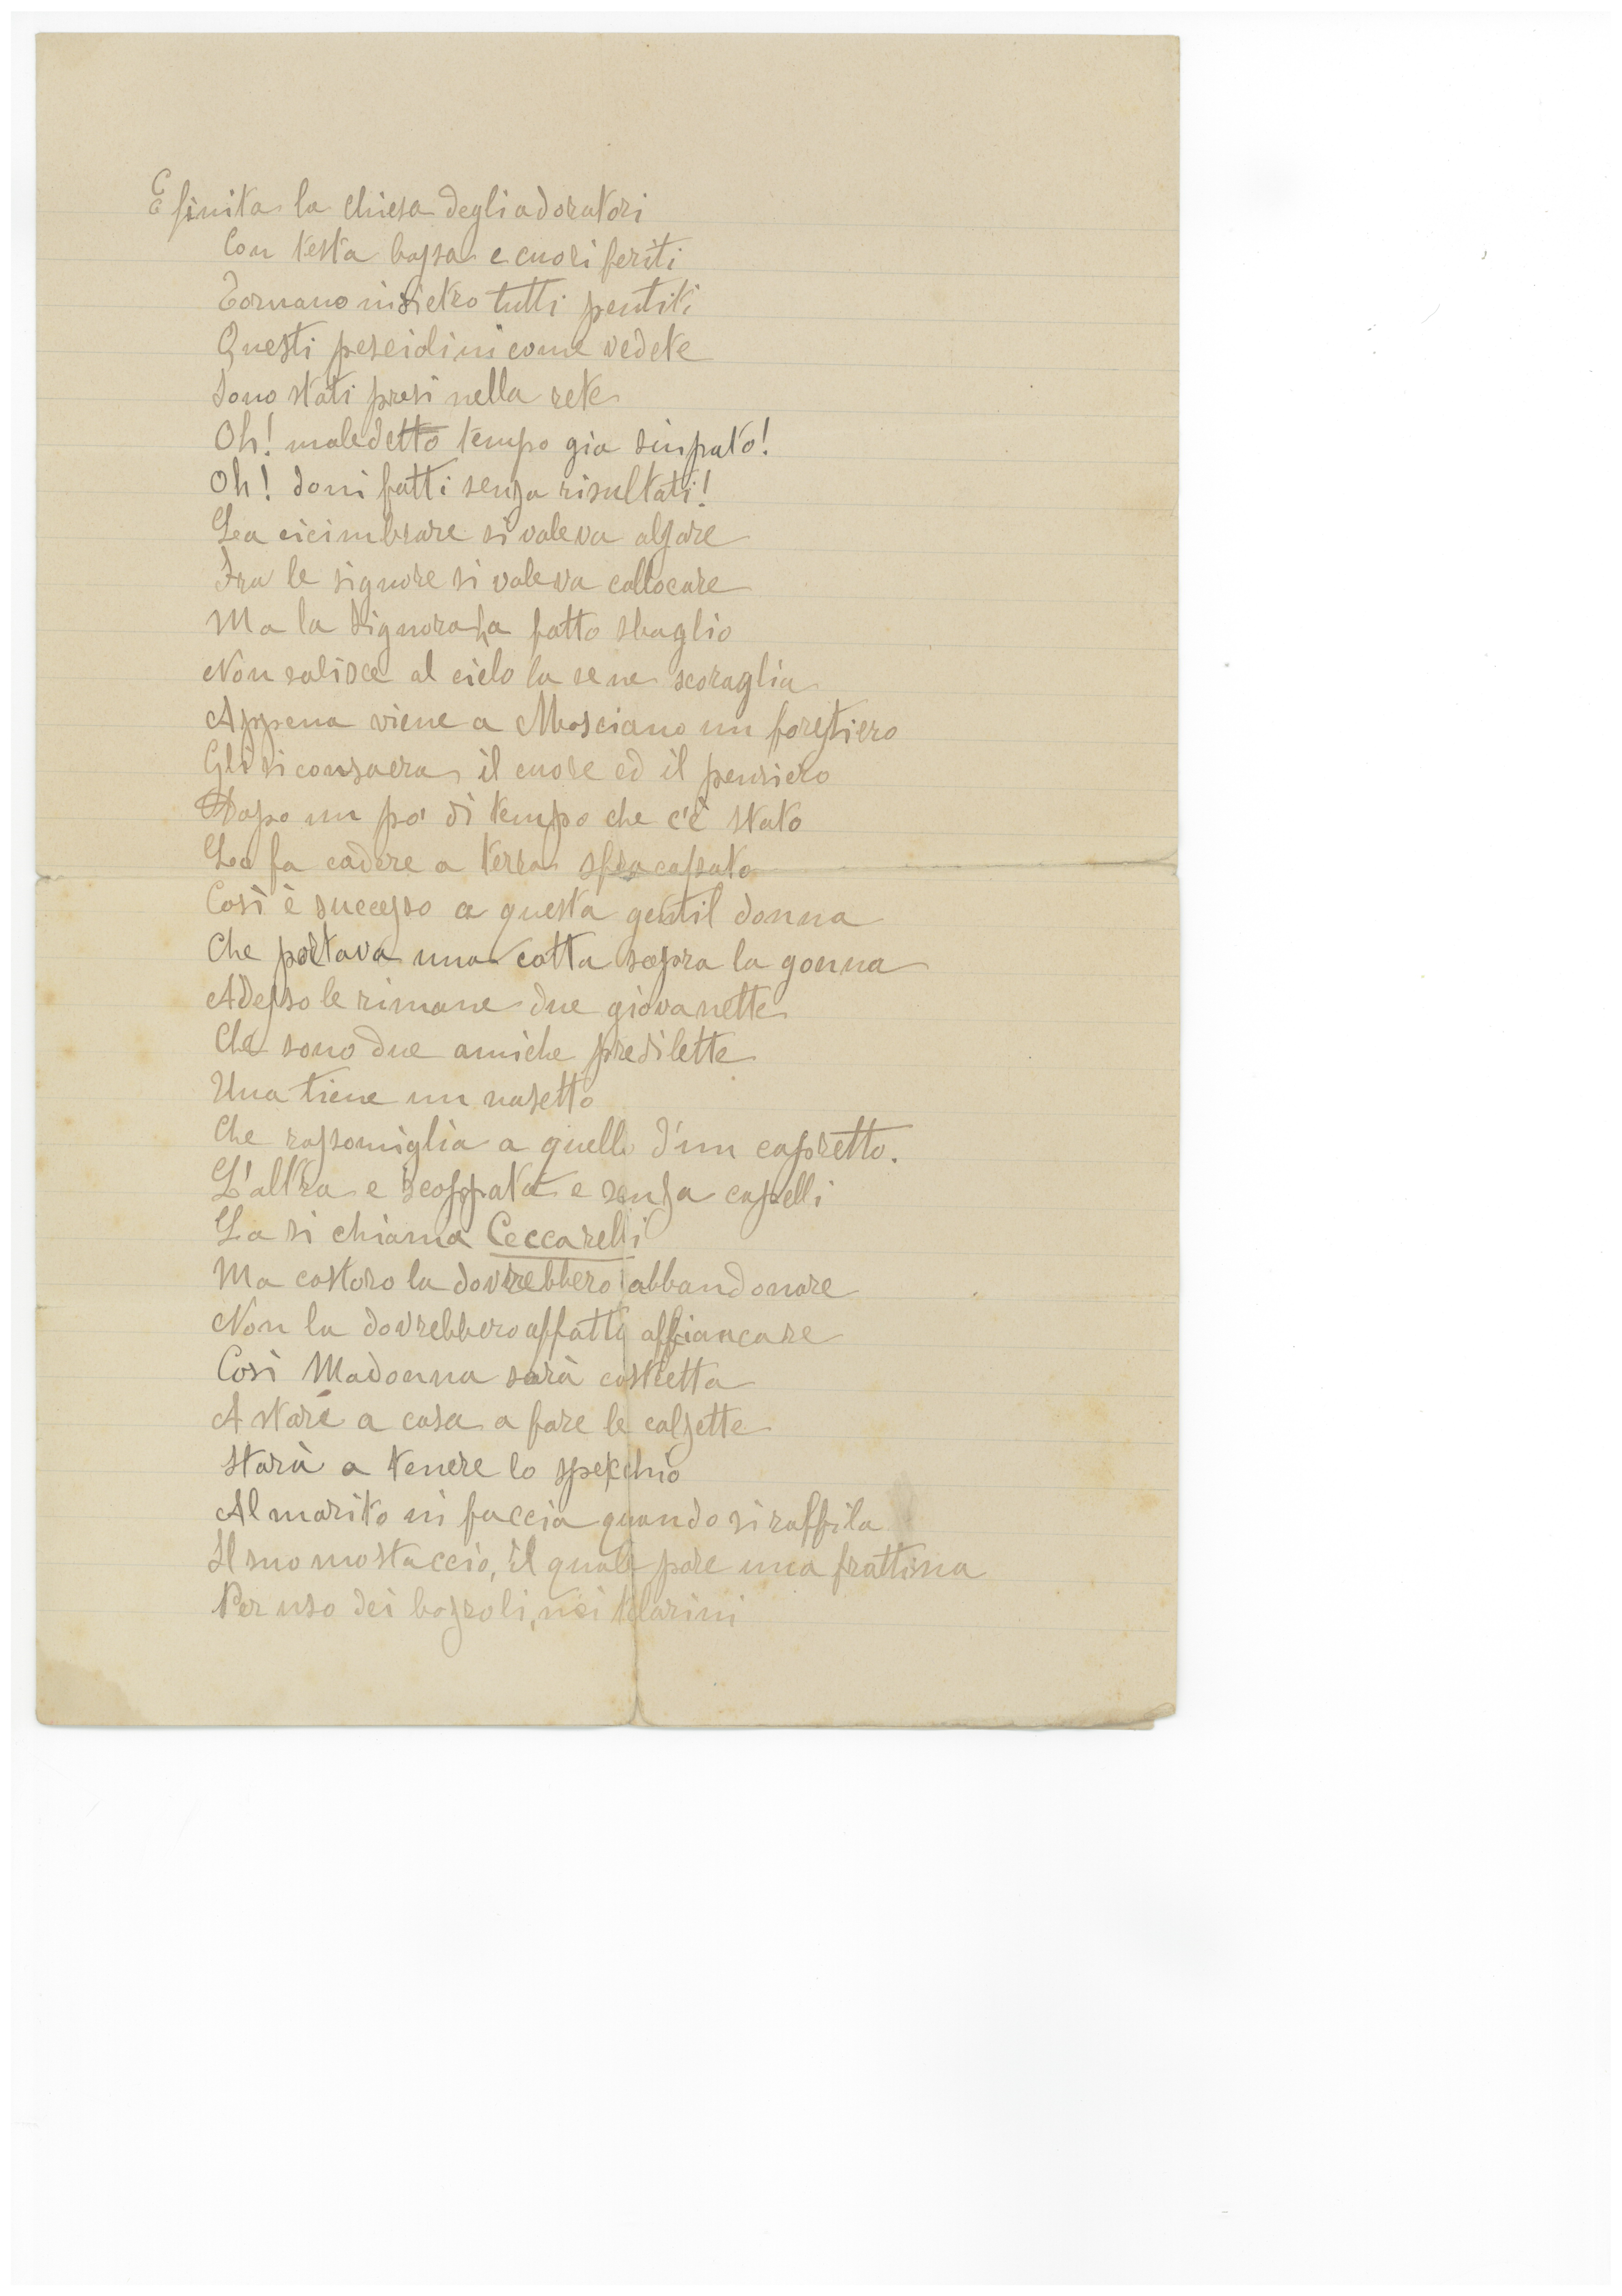 E finita la chiesa degli adoratori
Con testa bassa e cuori feriti
Tornano indietro tutti pentiti
Questi pesciolini come vedete
Sono stati presi nella rete
Oh! maledetto tempo gia sciupato!
Oh! doni fatti senza risultati!
La si voleva alzare
Fra le signore si voleva collocare
Ma la Signora ha fatto sbaglio
Non salisce al cielo la se ne scoraglia
Appena viene a Mosciano un forestiero
Gli si consacra il cuore ed il pensiero
Dopo un po' di tempo che c'è stato
La fa cadere a terra sfracassato
Così è successo a questa gentil donna
Che portava una cotta sopra la gonna
Adesso le rimane due giovanette
Che sono due amiche predilette
Una tiene un nasetto
Che rassomiglia a quello d'un capretto.
L'altra e scoppata e senza capelli
La si chiama Ceccarelli
Ma costoro la dovrebbero abbandonare
Non la dovrebbero affatto affiancare
Così Madonna sarà costretta
A stare a casa a fare le calzette
Starà a tenere lo specchio
Al marito in faccia quando si raffila
Il suo mostaccio, il quale pare una frattina
Per uso dei bozzoli, nei telarini